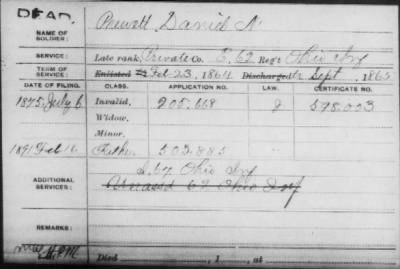 DEAD.
NAME OF SOLDIER: Prewett, Daniel A.
SERVICE: Late rank, Private Co. E, 62 Reg't Ohio Inf
TERM OF SERVICE: Enlisted Feb 23, 1864 Discharged Sept, 1865
DATE OF FILING. CLASS. APPLICATION NO. LAW. CERTIFICATE NO.
1875 July 6 Invalid, 205.668 578.003
Widow,
Minor,
1891 Feb 16 Fath. 503.885
ADDITIONAL SERVICES: 67 Ohio Inf
67 Ohio Inf
REMARKS:
Died, 1, at